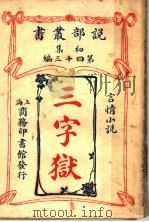 說部叢書
初集
第四十三編
言情小說
三字獄
上海
商務印書館發行